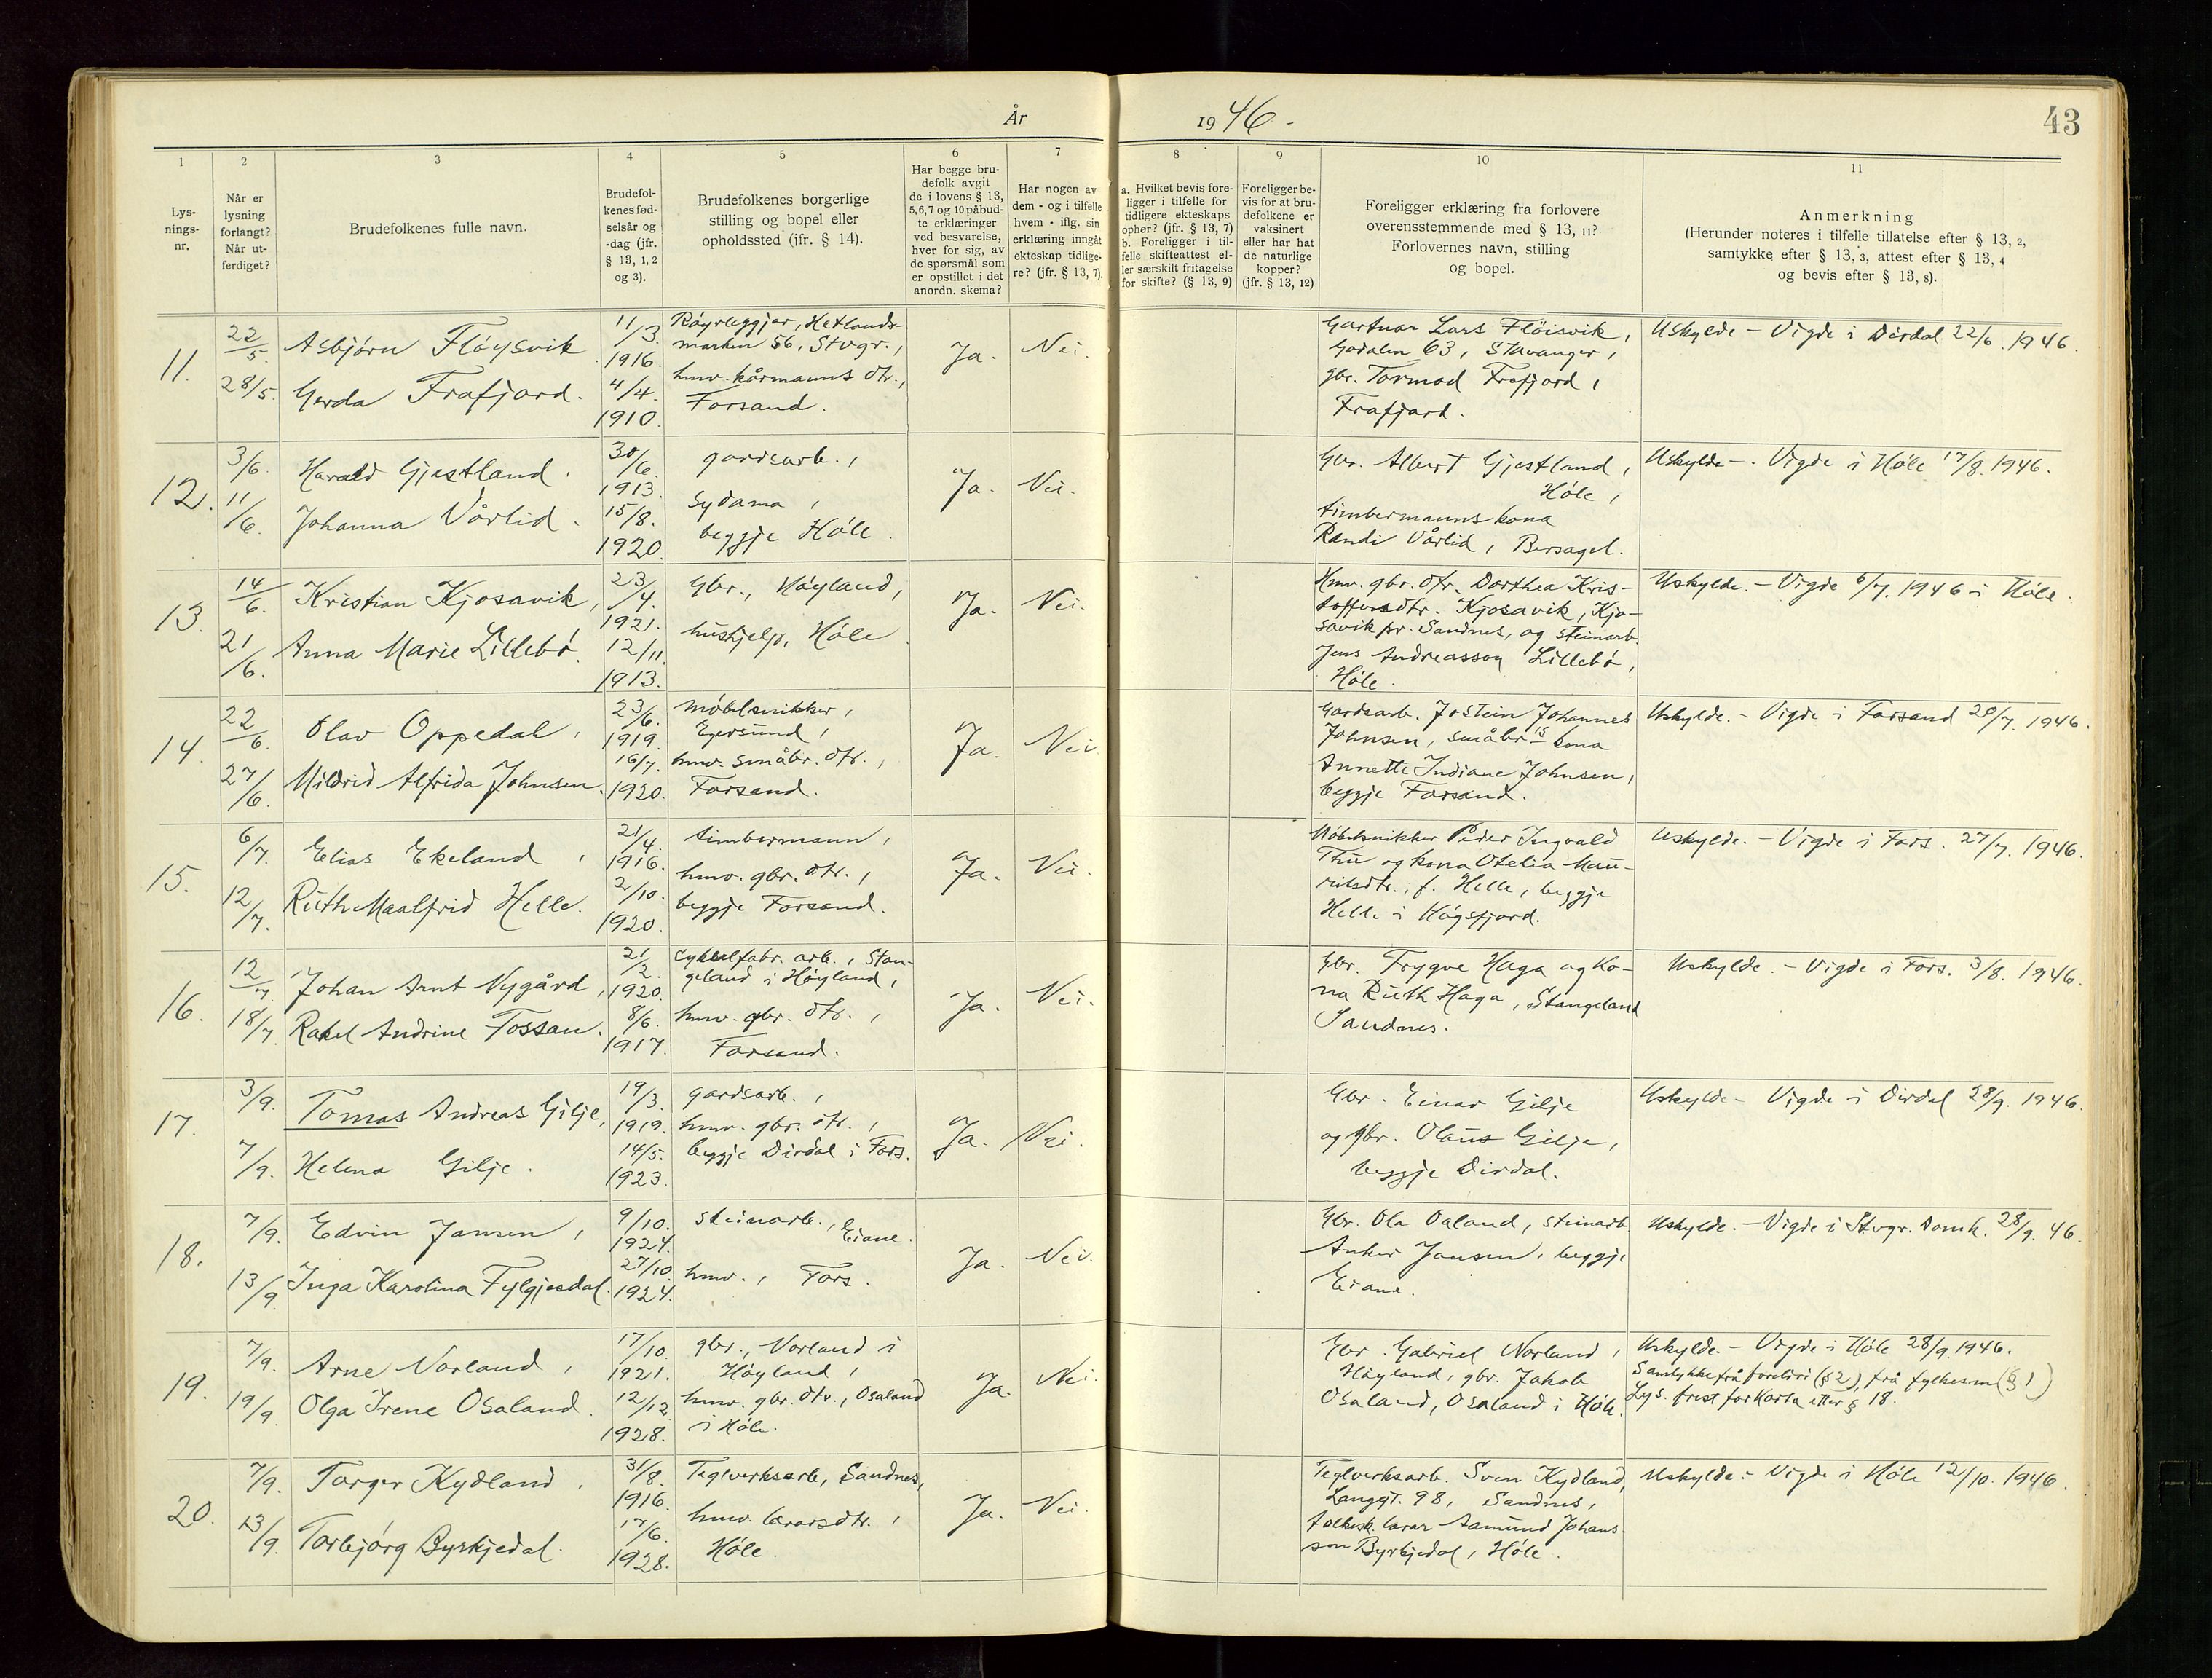 År 1946.-
43
1
2
3
4
5
6
7
8
9
10
11
Lys-
nings-
nr.
Når er
lysning
forlangt?
Når ut-
ferdiget?
Brudefolkenes fulle navn.
Brudefol-
kenes fød-
selsår og
-dag (jfr.
§ 13, 1, 2
og 3).
Brudefolkenes borgerlige
stilling og bopel eller
opholdssted (ifr. § 14).
Har begge bru-
defolk avgit
de i lovens § 13,
5,6,7 og 10 påbud-
te erklæringer
ved besvarelse,
hver for sig, av
de spørsmål som
er opstillet i det
anordn. skema?
Har nogen av
dem - og i tilfelle
hvem - iflg. sin
erklæring inngåt
ekteskap tidlige-
re? (jfr. § 13, 7).
a. Hvilket bevis fore-
ligger i tilfelle for
tidligere ekteskaps
ophør? (jfr. § 13, 7)
b. Foreligger i til-
felle skifteattest el-
ler særskilt fritagelse
for skifte? (§ 13, 9)
Foreligger be-
vis for at bru-
defolkene er
vaksinert
eller har hat
de naturlige
kopper?
(jfr. § 13, 12)
Foreligger erklæring fra forlovere
overensstemmende med § 13, 11?
Forlovernes navn, stilling
og bopel.
Anmerkning
(Herunder noteres i tilfelle tillatelse efter § 13, 2,
samtykke efter § 13, 3, attest efter § 13, 4
og bevis efter § 13, 8).
11.
22/5.
28/5.
Asbjørn Fløysvik
Gerda Frafjord.
11/3.
1916.
4/4.
1910.
Røyrleggjar, Hetlands-
marken 56, Stvgr.,
hmv. kårmanns dtr.,
Forsand.
Ja.
Nei.
Gartnar Lars Fløisvik,
Godalen 63, Stavanger,
gbr. Tormod Frafjord,
Frafjord.
Uskylde - Vigde i Dirdal 22/6. 1946.
12.
3/6.
11/6.
Harald Gjestland.
Johanna Vårlid.
30/6.
1913.
15/8.
1920.
gardsarb.,
sydama,
beggje Høle.
Ja.
Nei.
Gbr. Albert Gjestland,
Høle,
timbermannskona
Randi Vårlid, Bersagel.
Uskylde -. Vigde i Høle 17/8. 1946.
13.
14/6.
21/6.
Kristian Kjosavik,
Anna Marie Lillebø.
23/4.
1921.
12/11.
1913.
Gbr., Høyland,
hushjelp, Høle.
Ja.
Nei.
Hmv. gbr. dtr. Dorthea Kris-
toffersdtr. Kjosavik, Kjo-
savik pr. Sandnes, og steinarb.
Jens Andreasson Lillebø,
Høle.
Uskylde. - Vigde 6/7. 1946 i Høle.
14.
22/6.
27/6.
Olav Oppedal,
Mildrid Alfrida Johnsen.
23/6.
1919.
16/7.
1920.
møbelsnikker,
Egersund,
hmv. småbr. dtr.,
Forsand.
Ja.
Nei.
Gardsarb. Jostein Johannes
Johnsen, småbr.- kona
Annette Indiane Johnsen,
beggje Forsand.
Uskylde. - Vigde i Forsand 20/7. 1946.
15.
6/7.
12/7.
Elias Ekeland,
Ruth Maalfrid Helle.
21/4.
1916.
2/10.
1920.
timbermann,
hmv. gbr. dtr.,
beggje Forsand.
Ja.
Nei.
Møbelsnikker Peder Ingvald
Thu og kona Otelia Mau-
ritsdtr., f. Helle, beggje
Helle i Høgsfjord.
Uskylde. - Vigde i Fors. 27/7. 1946.
16.
12/7.
18/7.
Johan Arnt Nygård,
Rakel Andrine Fossan.
21/2.
1920.
8/6.
1917.
Cykkelfabr. arb., Stan-
geland i Høyland,
hmv. gbr. dtr.,
Forsand.
Ja.
Nei.
Gbr. Trygve Haga og ko-
na Ruth Haga, Stangeland
Sandnes.
Uskylde. - Vigde i Fors. 3/8. 1946.
17.
3/9.
7/9.
Tomas Andreas Gilje,
Helena Gilje.
19/3.
1919.
14/5.
1923.
gardsarb.,
hmv. gbr. dtr.,
beggje Dirdal i Fors.
Ja.
Nei.
Gbr. Einar Gilje
og gbr. Olaus Gilje,
beggje Dirdal.
Uskylde - Vigde i Dirdal 28/9. 1946.
18.
7/9.
13/9.
Edvin Jansen,
Inga Karolina Fylgjesdal.
9/10.
1924.
27/10.
1924.
steinarb., Eiane.
hmv., Fors.
Ja.
Nei.
Gbr. Ola Oaland, steinarb.
Anker Jansen, beggje
Eiane.
Uskylde. - Vigde i Stvgr. Domk. 28/9. 46.
19.
7/9.
19/9.
Arne Norland,
Olga Irene Osaland.
17/10.
1921.
12/12.
1928.
gbr., Norland i
Høyland,
hmv. gbr. dtr., Osaland
i Høle.
Ja.
Nei.
Gbr. Gabriel Norland,
Høyland, gbr. Jakob
Osaland, Osaland i Høle.
Uskylde. - Vigde i Høle 28/9. 1946.
Samtykke frå foreldri (§ 2), frå fylkesm (§ 1)
Lys. frest forkorta etter § 18.
20.
7/9.
13/9.
Torger Kydland.
Torbjørg Byrkjedal.
31/8.
1916.
17/6.
1928.
Teglverksarb., Sandnes,
hmv. lærarsdtr.,
Høle.
Ja.
Nei.
Teglverksarb. Sven Kydland,
Langgt. 98, Sandnes,
folkesk. lærar Aamund Johans-
son Byrkjedal, Høle.
Uskylde - Vigde i Høle 12/10. 1946.